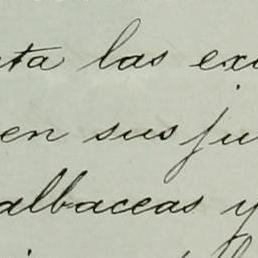 ta las ex
en sus ju
albaceas y